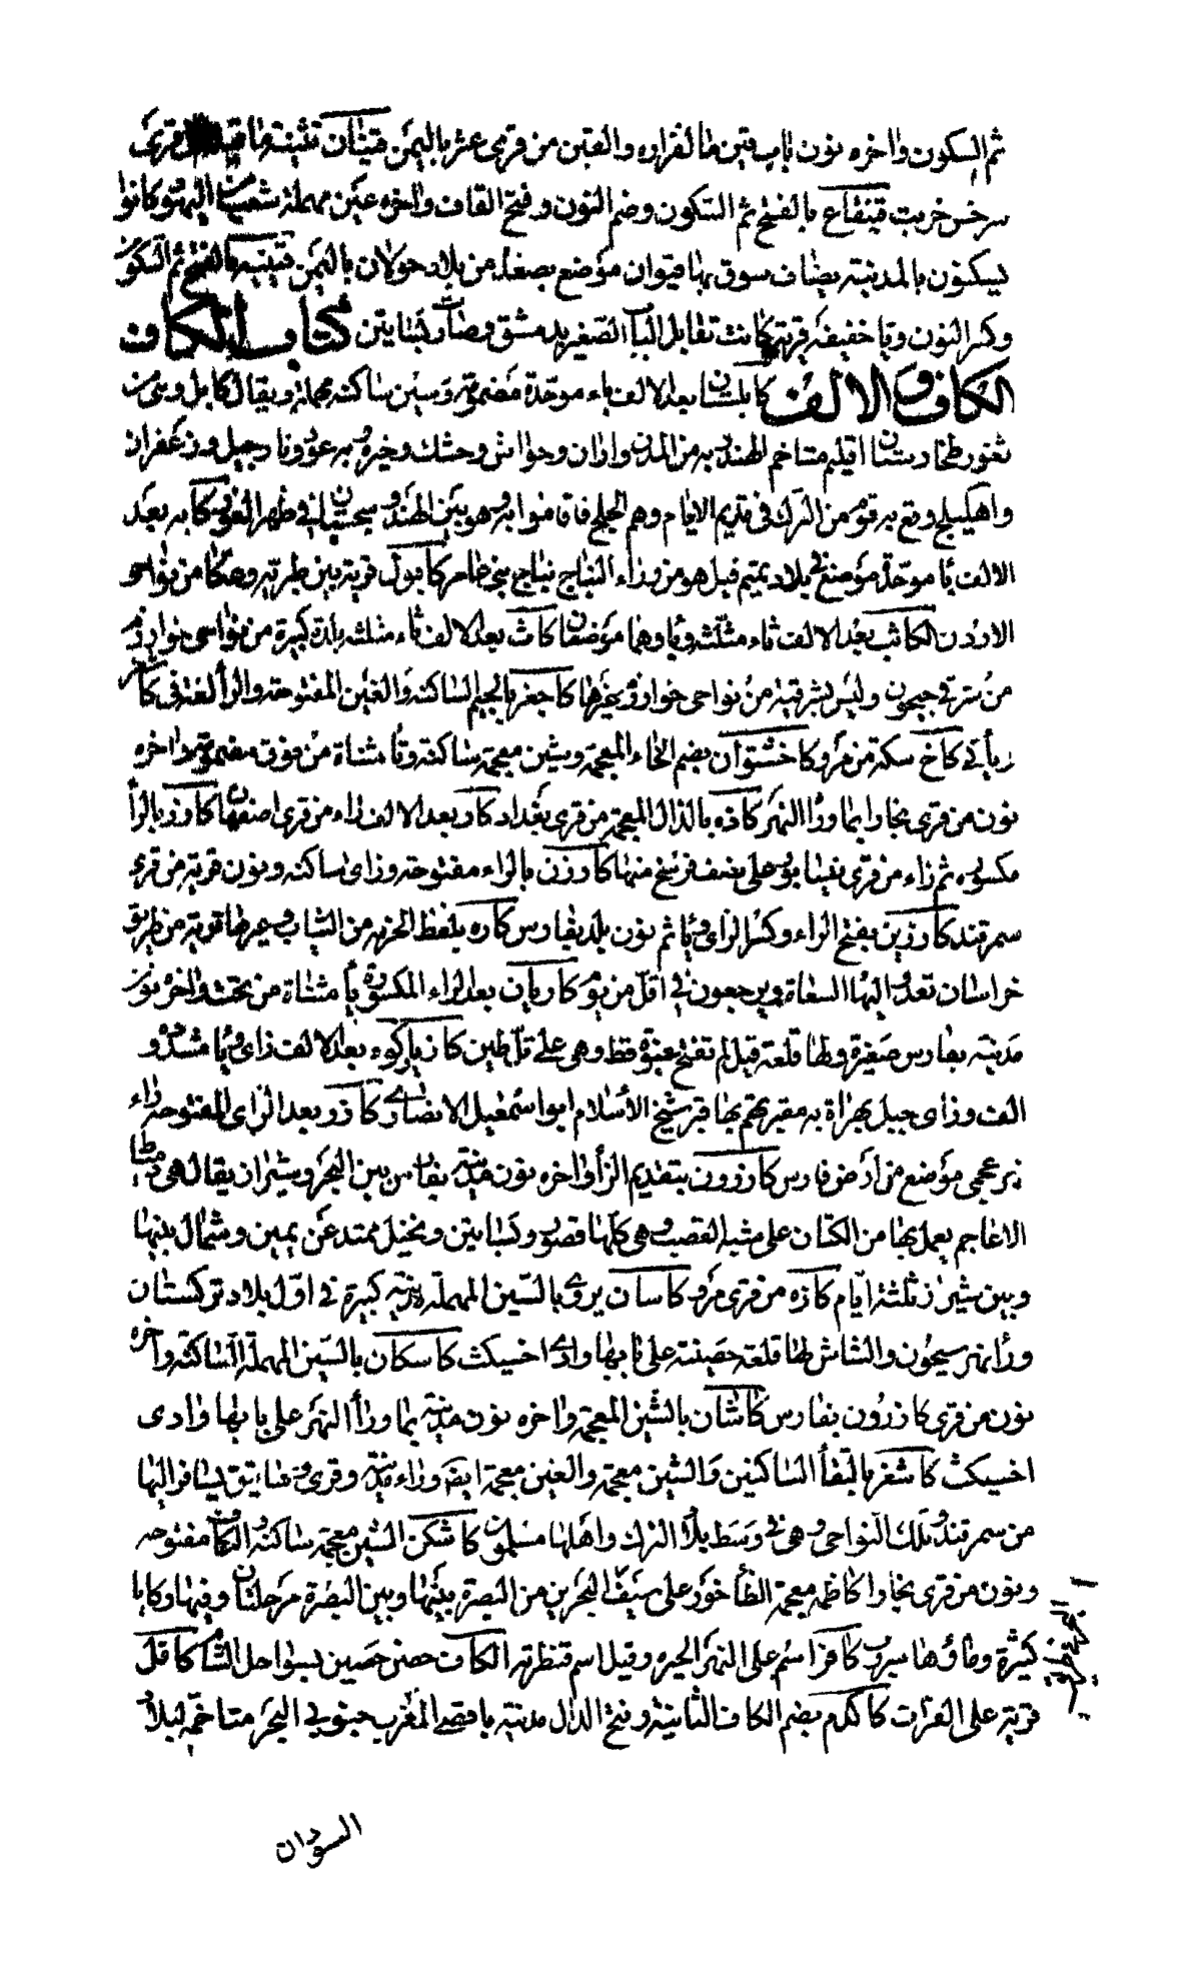 ثم السكون واخره نون باب قتين ما لفزاره والقين من قرى عثر باليمن قينان تثنية ما قرى
سرخس خربت قينقاع بالفتح ثم السكون وضم النون وفتح القاف واخره عين مهملة شعب من اليهود كانوا
يسكنون بالمدينة يضاف سوق بها قيوان موضع بصعدة من بلاد خولان باليمن قينية بالفتح ثم السكون
وكسر النون ويا خفيفة قرية كانت تقابل الباب الصغير بدمشق وصارت بساتين كتاب الكاف
الكاف والالف كابلستان بعد الالف باء موحدة مضمومة وسين ساكنة مهملة ويقال كابل وهى من
ثغور طخارستان اقليم متاخم الهند به من المدن واذان وخواش وخشك وخبره به عود ونارجيل وزعفران
واهليلج وقع به قوم من الترك في قديم الايام وهم الخلج فاقاموا به وهو بين الهند وسجستان في ظهر الغور كابه بعد
الالف با موحدة موضع في بلاد تميم قيل هو من وراء النباج نباج بني عامر كابول قرية بين طبرية وعكا من نواحى
الاردن الكاثب بعد الالف ثاء مثلثة وبا وهما موضعان كاث بعد الالف ثاء مثلثة بلدة كبيرة من نواحى خوارزم
من شرقي جيحون وليس بشرقيه من نواحى خوارزم غيرها كاجغر بالجيم الساكنة والغين المفتوحة والرأ لغة في كاشغر
يأتي كاخ سكة من مرو كاخشتوان بضم الخاء المعجمة وشين معجمة ساكنة وتا مثناة من فوق مضمومة واخره
نون من قرى بخارا بما ورأ النهر كاذه بالذال المعجمة من قرى بغداد كار بعد الالف راء من قرى اصفهان كارز بالرأ
مكسوره ثم زاء من قرى نيسابور على نصف فرسخ منها كارزن بالراء مفتوحة وزاى ساكنه ونون قرية من قرى
سمرقند كارزين بفتح الراء وكسر الزاى ويا ثم نون بلد بفارس كاره بلفظ الحزمه من الثياب وغيرها قرية من طريق
خراسان تعدو اليها السعاة ويرجعون في اقل من يوم كاريان بعد الراء المكسورة يا مثناة من تحت واخره نون
مدينة بفارس صغيرة ولها قلعة قيل لم تفتح عنوة قط وهى على تل طين كازياركوه بعد الالف زاى ويا مشدده و
الف وزاى جبيل بهراة به مقبرتهم بها قبر شيخ الاسلام ابو اسمعيل الانصارى كازر بعد الزاى المفتوحة راء
نبر عجمى موضع من ارض فارس كازرون بتقديم الزأ واخره نون مدينة بفارس بين البحر وشيراز يقال هى دمياط
الاعاجم يعمل بها من الكتان على شبه القصب وهى كلها قصور وبساتين ونخيل ممتد عن يمين وشمال بينها
وبين شيراز ثلثة ايام كازه من قرى مرو كاسان يروى بالسين المهملة مدينة كبيرة في اول بلاد تركستان
ورأ نهر سيحون والشاش لها قلعة حصينة على بابها وادى اخسيكث كاسكان بالسين المهملة الساكنة واخره
نون من قرى كازرون بفارس كاشان بالشين المعجمة واخره نون مدينة بما ورأ النهر على بابها وادى
اخسيكث كاشغر بالتقأ الساكنين والشين معجمة والغين معجمة ايضا وراء مدينة وقرى ورساتيق يسافر اليها
من سمرقند وتلك النواحى وهى في وسط بلاد الترك واهلها مسلمون كاشكن الشين معجمة ساكنة والكاف مفتوحه
ونون من قرى بخارا كاظمه معجمة الظأ خور على سيف البحرين من البصرة بينها وبين البصرة مرحلتان وفيها ركايا
كثيرة وماؤها سروب كافر اسم على النهر الحيره وقيل اسم قنظرته الكاف حصن حصين بسواحل الشام كاقل
قرية على الفرات كاكدم بضم الكاف الثانية وفتح الدال مدينة باقصى المغرب جنوبي البحر متاخمة لبلاد
السودان